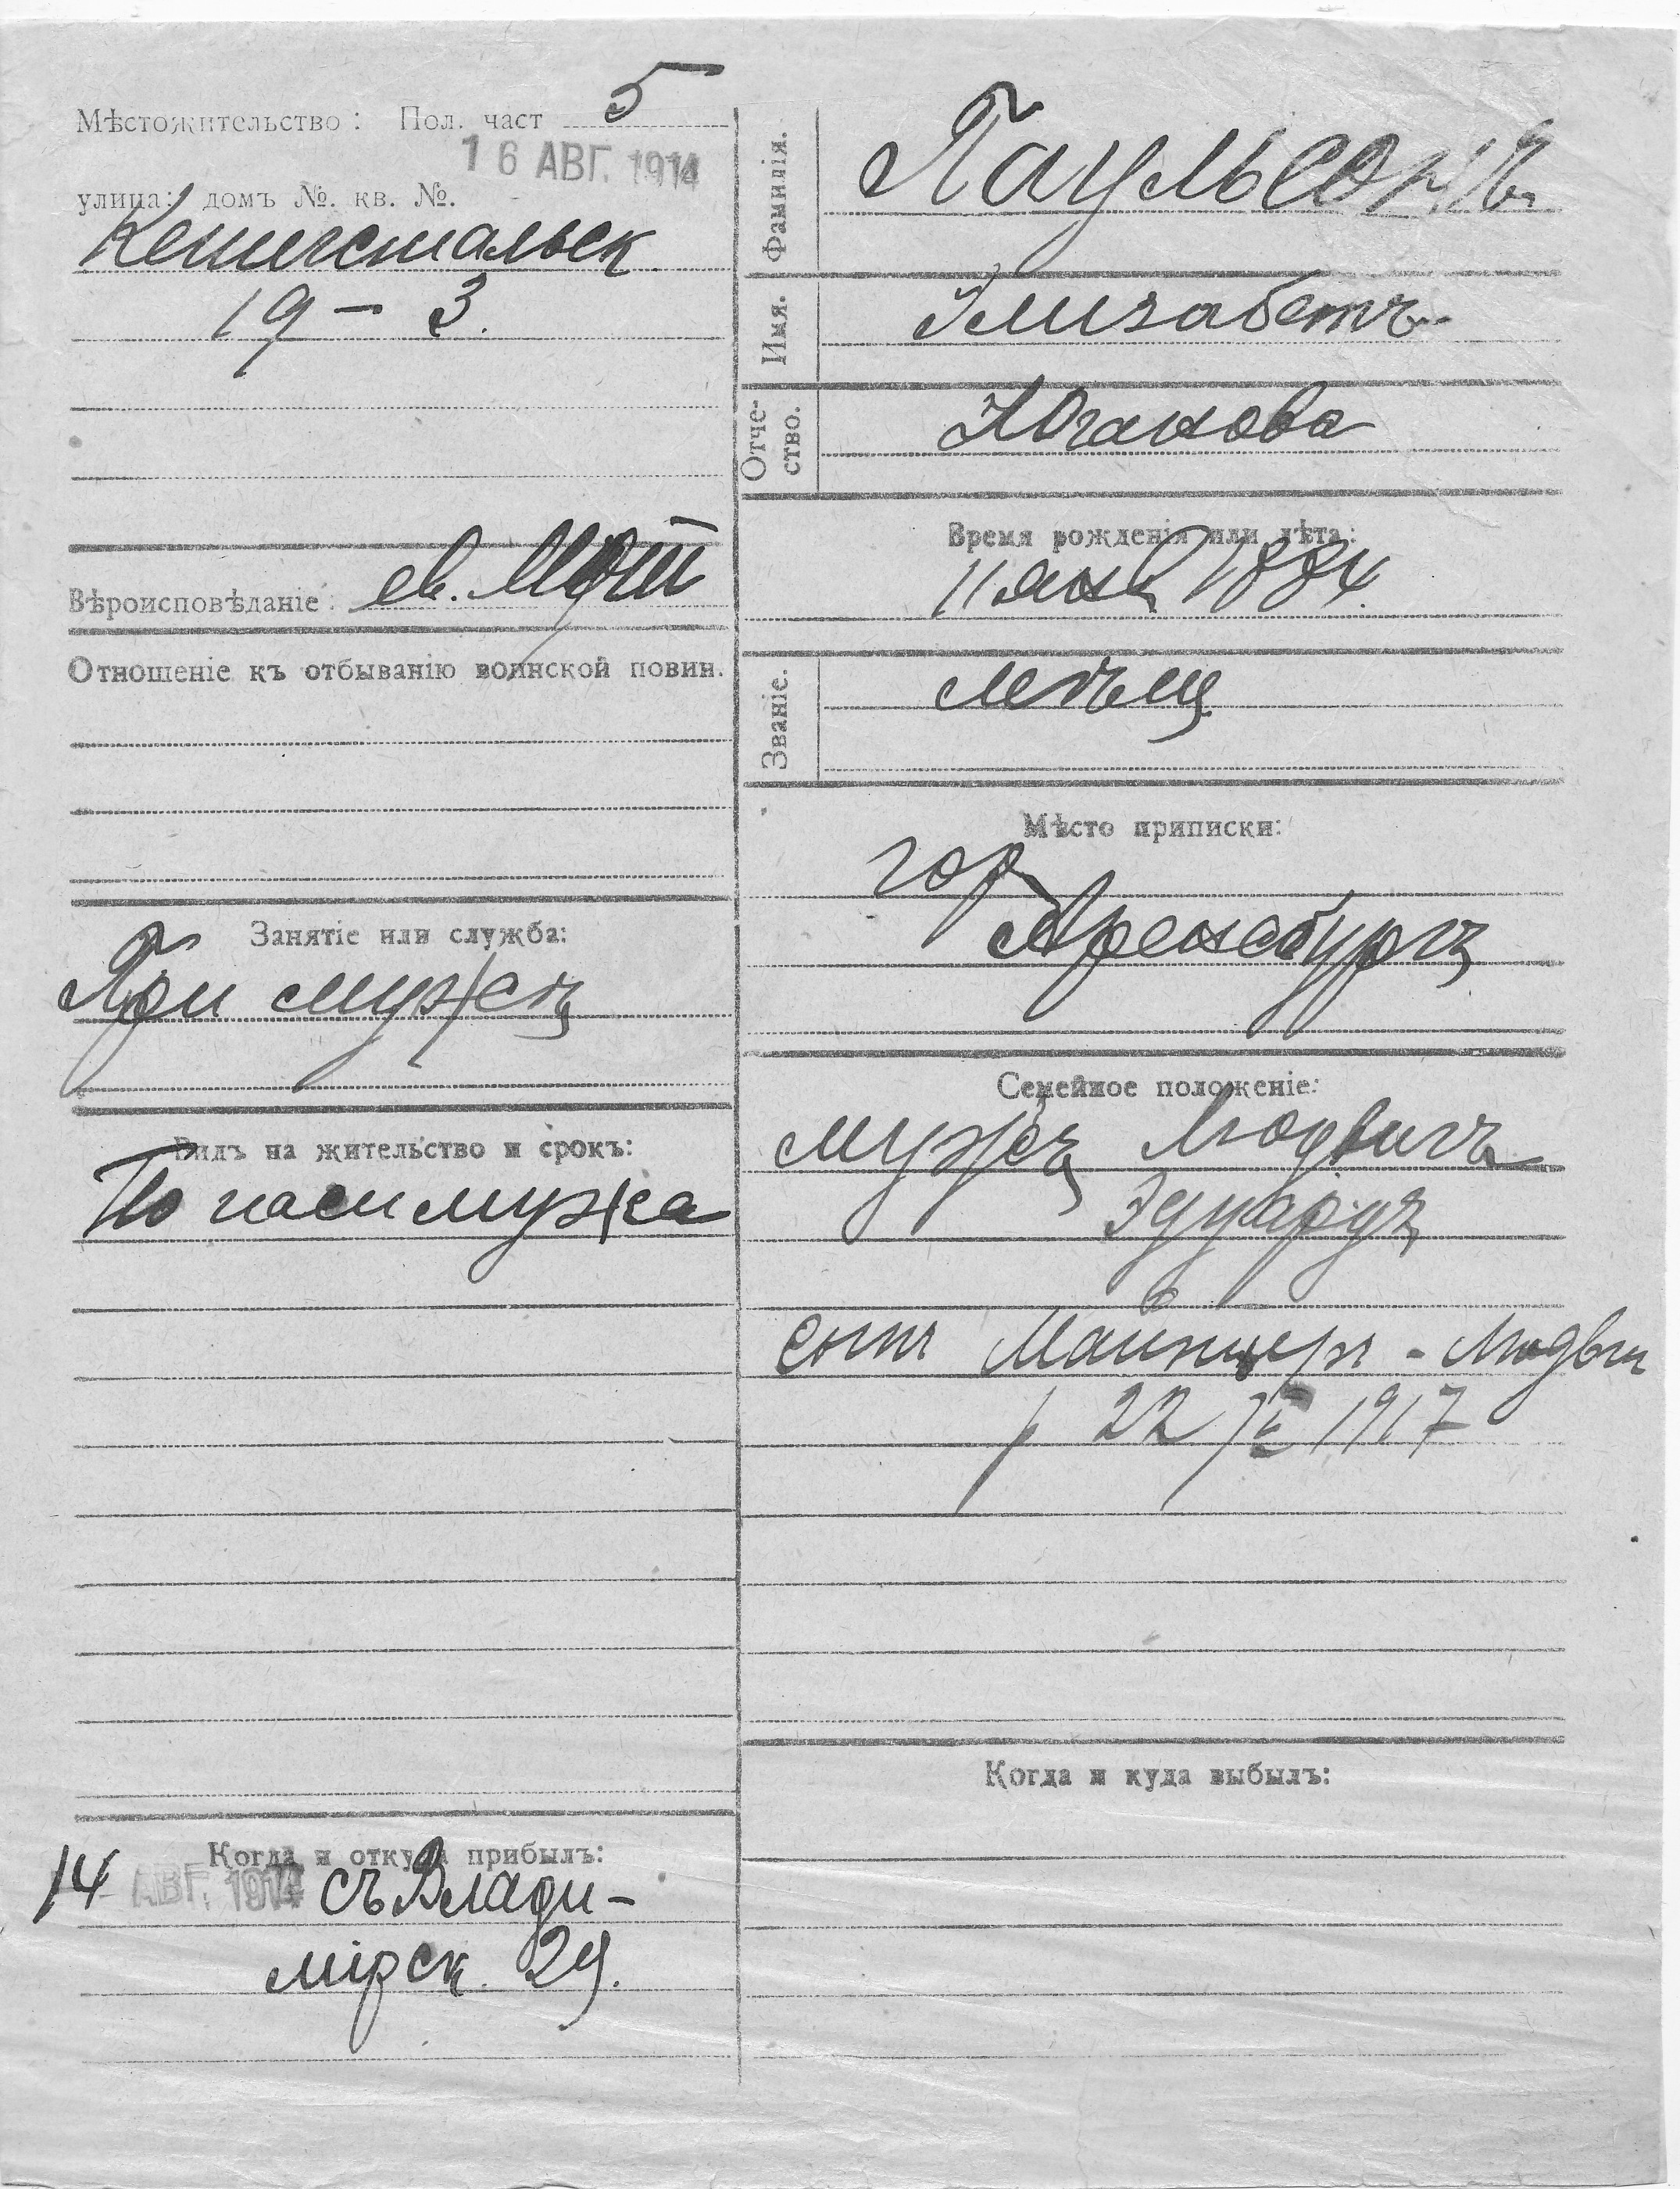 Мѣстожительство: Пол. част 5
16 АВГ. 1914
улица: домъ №. кв. №.
Кенигстальск
19 – 3.
Вѣроисповѣданіе: ев. Лют
Отношеніе къ отбыванію воинской повин.
Занятіе или служба:
При мужѣ
Видъ на жительство и срокъ:
По пасп мужа
Когда и откуда прибылъ:
14 АВГ. 1914 съ Влади-
мірск. 29.
Фамилія. Паульсонъ
Имя. Элизабетъ
Отче-
ство. Югановa
Время рожденія или лѣта:
11 янв 1884
Званіе. мѣщ
Мѣсто приписки:
гор
Аренсбургъ
Семейное положеніе:
мужъ Людвигъ
Эдуардъ
сынъ
Людвиг
22 1917
Когда и куда выбылъ: